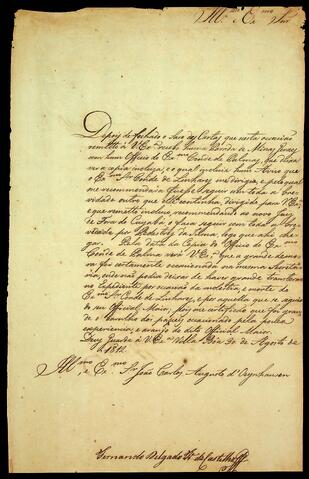 Ill.mo e Ex.mo Snr
Depois de fechado o Saco das Cartas, que nesta occazião
remetto á V. Ex.ª recebi huma Parada de Minas Geraes
com hum Officio do Ex.mo Conde de Palma, que
a copia incluza, o qual incluia hum Avizo que
o Ex.mo Sr. Conde de Linhares me dirigia, e pelo qual
me recommendava fizesse seguir com toda a bre-
vidade outro que elle continha, dirigido para V. Ex.ª
que remetto incluzo, recommendando ao novo Juiz
de Fora do Cuyabá o faça seguir com toda a bre-
vidade por Pedestres da, logo que ahi che-
gar. Pela data da Copia do Officio do Ex.mo
Conde de Palma verá V. Ex.ª que a grande demo-
ra foi certamente occazionada na mesma Secreta-
ria, onde não podia deixar de haver grande transtorno
no expediente por occazião da molestia, e morte do
Ex.mo Sr. Conde de Linhares, e por aquella que se seguio
do seu Official Maior, pois me certificão que foi gran-
de o de papeis occazionado pela
experiencia, e arranjo do dito Official Maior.
Deos Guarde a V. Ex.ª Villa Boa 30 de Agosto de
1812.
Ill.mo e Ex.mo Sr. João Carlos Augusto d'Oeynhausen
Fernando Delgado Fr. de Castilho